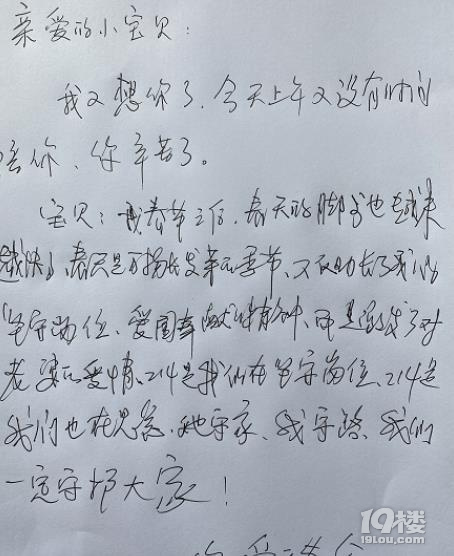 亲爱的小宝贝:
我又想你了.今天上午又没有时间
陪你、你辛苦了。
宝贝:我春节之后.春天的脚步也越来
越快了、春天是万物发芽的季节、不仅助长了我们的
坚守岗位、爱国奉献精神、可是连发了对
老婆的爱情、214是我们在坚守岗位、214是
我们也在思念.她守家、我守路、我们
一定守护大家!
19楼
19lou.com